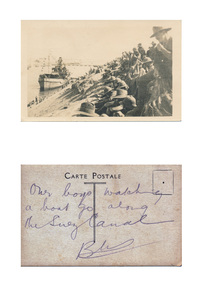 CARTE POSTALE
Our boys watching
a boat go along
the Suez Canal